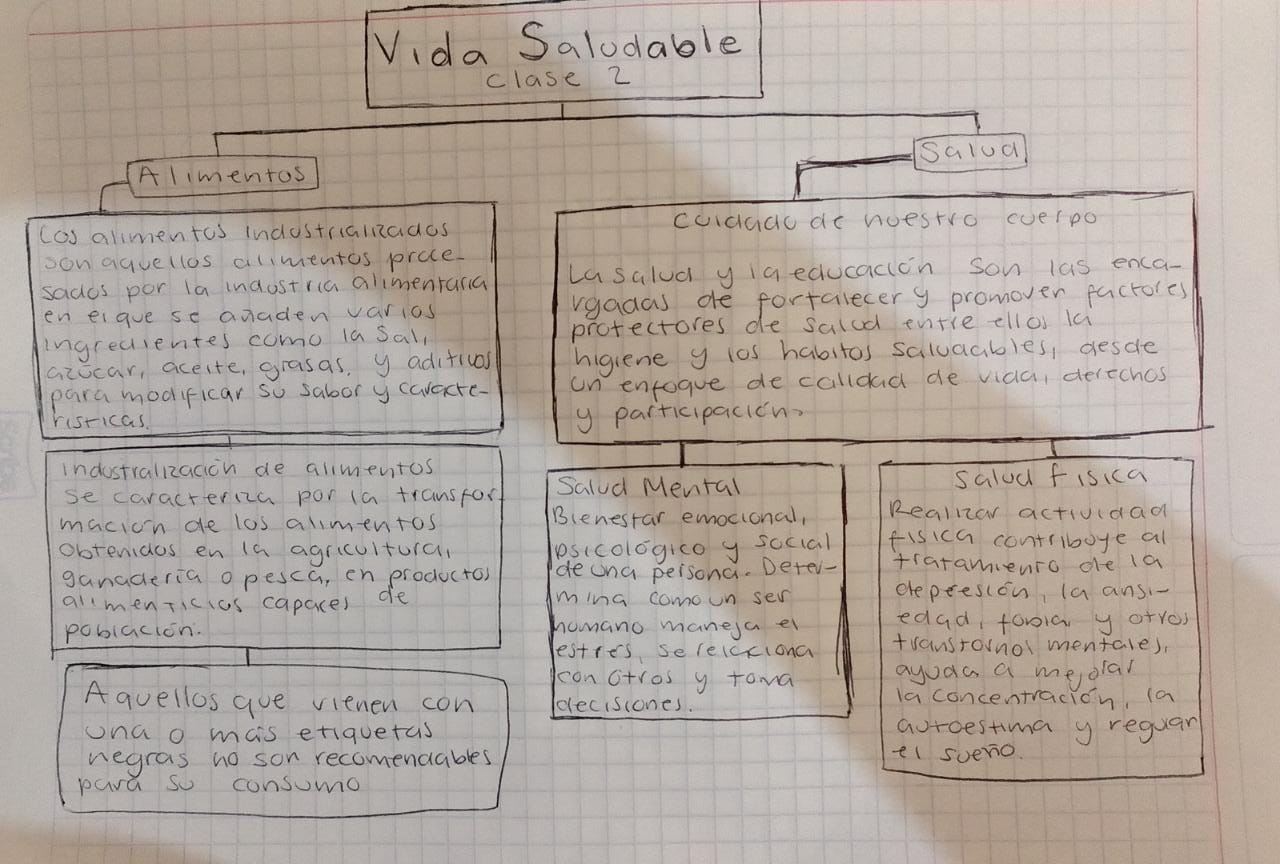 Vida Saludable
clase 2
Alimentos
Los alimentos industrializados
son aquellos alimentos proce-
sados por la industria alimentaria
en el que se añaden varios
ingredientes como la sal,
azúcar, aceite, grasas, y aditivos
para modificar su sabor y caracte-
risticas.
Industralización de alimentos
se caracteriza por la transfor
mación de los alimentos
obtenidos en la agricultura,
ganadería o pesca, en productos
alimenticios capaces de
población.
Aquellos que vienen con
una o más etiquetas
negras no son recomendables
para su consumo
Salud
Cuidado de nuestro cuerpo
La salud y la educación son las enca-
rgadas de fortalecer y promover factores
protectores de salud entre ellos la
higiene y los habitos saludables, desde
un enfoque de calidad de vida, derechos
y participación.
Salud Mental
Bienestar emocional,
psicológico y social
de una persona. Deter-
mina como un ser
humano maneja el
estrés, se relacciona
con otros y toma
decisiones.
Salud fisica
Realizar actividad
fisica contribuye al
tratamiento de la
depresión, la ansi-
edad, fobia y otros
transtornos mentales,
ayuda a mejorar
la concentración, la
autoestima y reguar
el sueño.